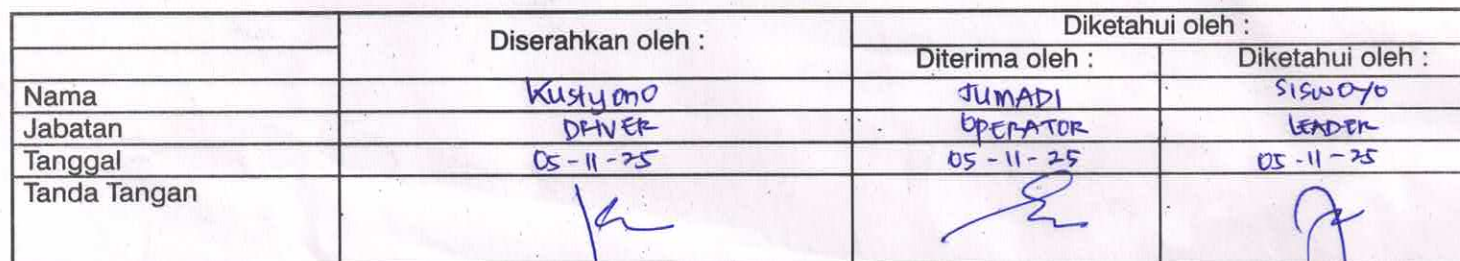 Diserahkan oleh : Diketahui oleh :
Diterima oleh : Diketahui oleh :
Nama Kustyono JUMADI SISWOYO
Jabatan DRIVER OPERATOR LEADER
Tanggal 05-11-25 05-11-25 05-11-25
Tanda Tangan